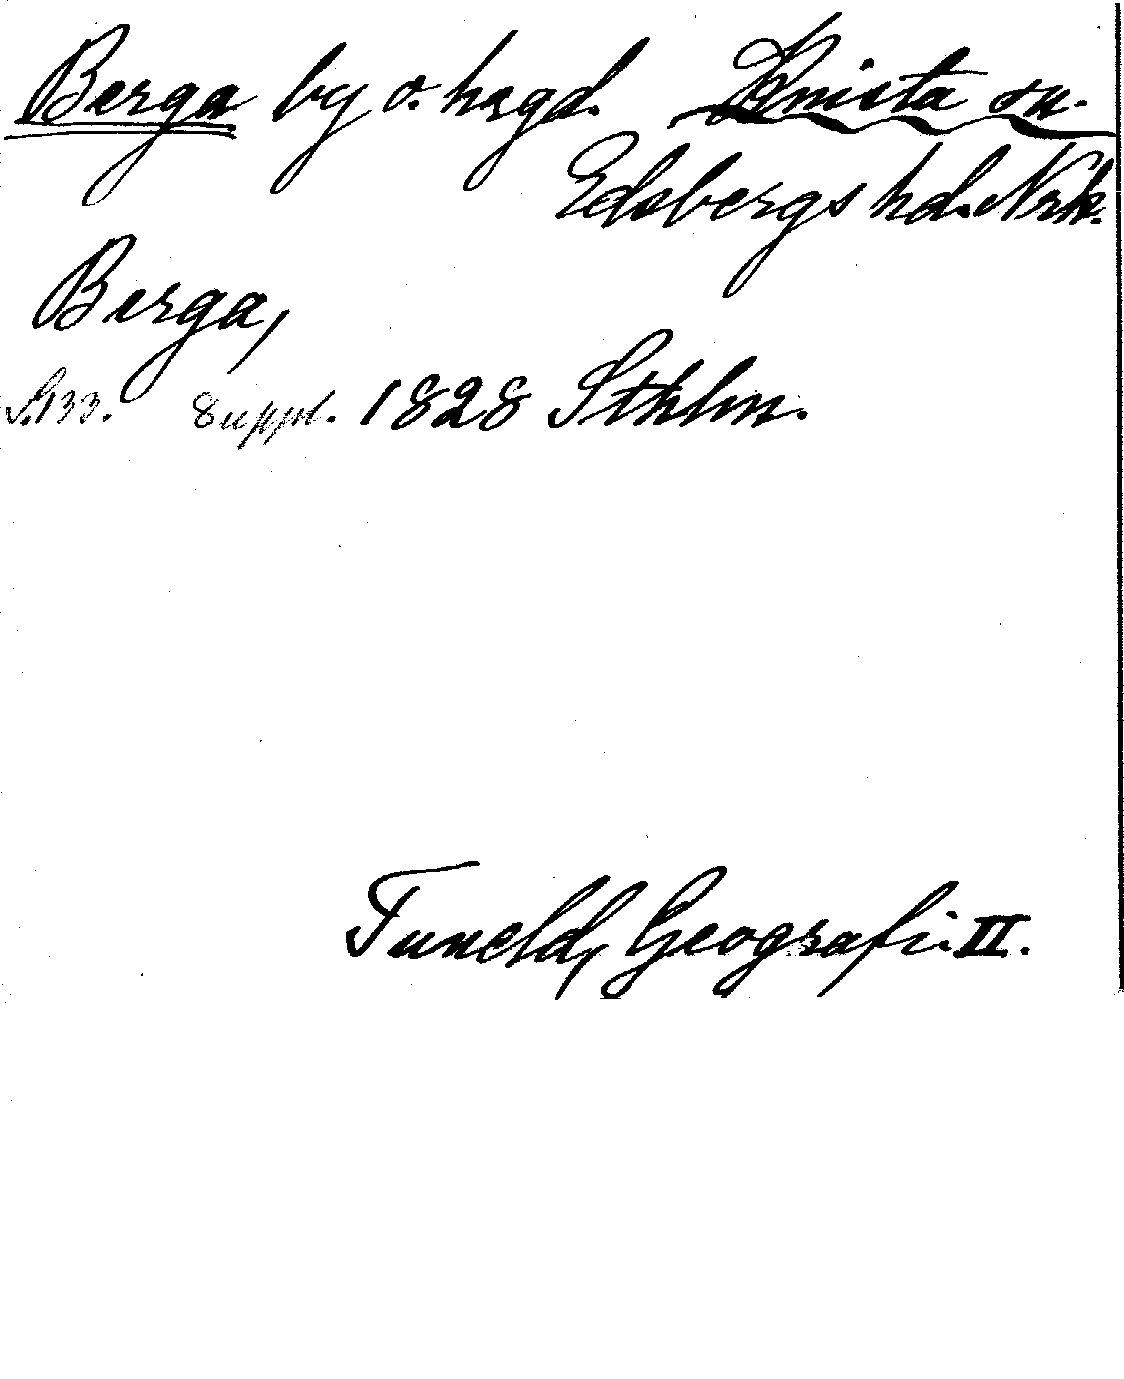 Berga by o. hrgd. Knista sn.
Edsbergs hd. Nrk.
Berga,
S. 133. Suppl. 1828 Sthlm.
Tuneld, Geografi. II.